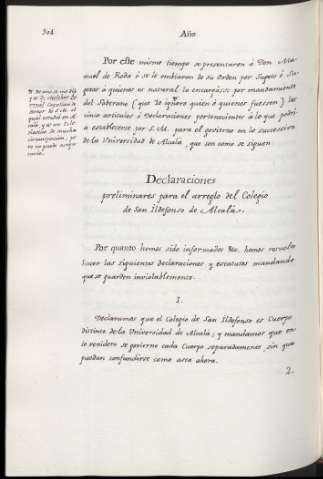 304
Año
Por este mismo tiempo se presentaron á Don Ma-
nuel de Roda ó se le embiaron de su Orden por Sugeto ó Su-
getos á quienes es natural lo encargase por mandamiento
del Soberano (que se ignora quien ó quienes fuessen) los
cinco articulos ó Declaraciones pertenecientes á lo que podri-
a establecerse por S. M. para el govierno en lo succesivo
de la Universidad de Alcalá, que son como se siguen.
Declaraciones
preliminares para el arreglo del Colegio
de San Ildefonso de Alcalá.
Por quanto hemos sido informados &c. hemos resuelto
hacer las siguientes Declaraciones y estatutos mandando
que se guarden inviolablemente.
1.
Declaramos que el Colegio de San Ildefonso es Cuerpo
distinto de la Universidad de Alcalá; y mandamos que en
lo venidero se govierne cada Cuerpo separadamente sin que
puedan confundirse como asta ahora.
2.